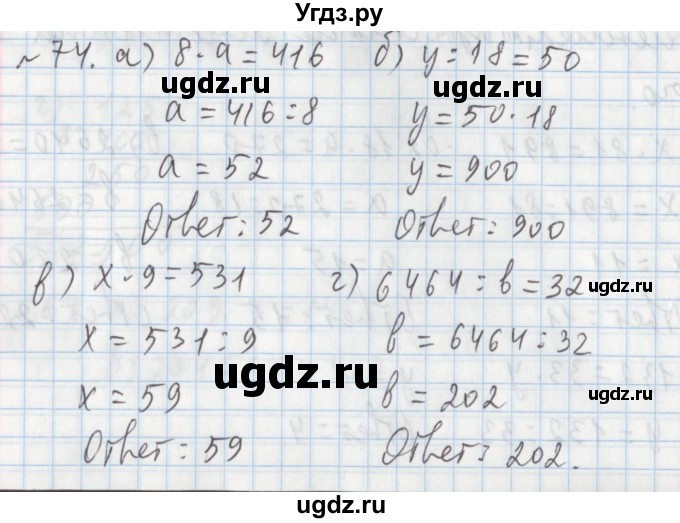 Угдз.ру
№74. а) 8·а=416 б) у:18=50
ugdz.ru ugdz.ru
а=416:8 у=50·18
а=52 у=900
Ответ:52 Ответ:900
в) х·9=531 г) 6464:в=32
ugdz.ru
х=531:9 в=6464:32
ugdz.ru
х=59 в=202
Ответ:59 Ответ:202.
ugdz.ru
ugdz.ru